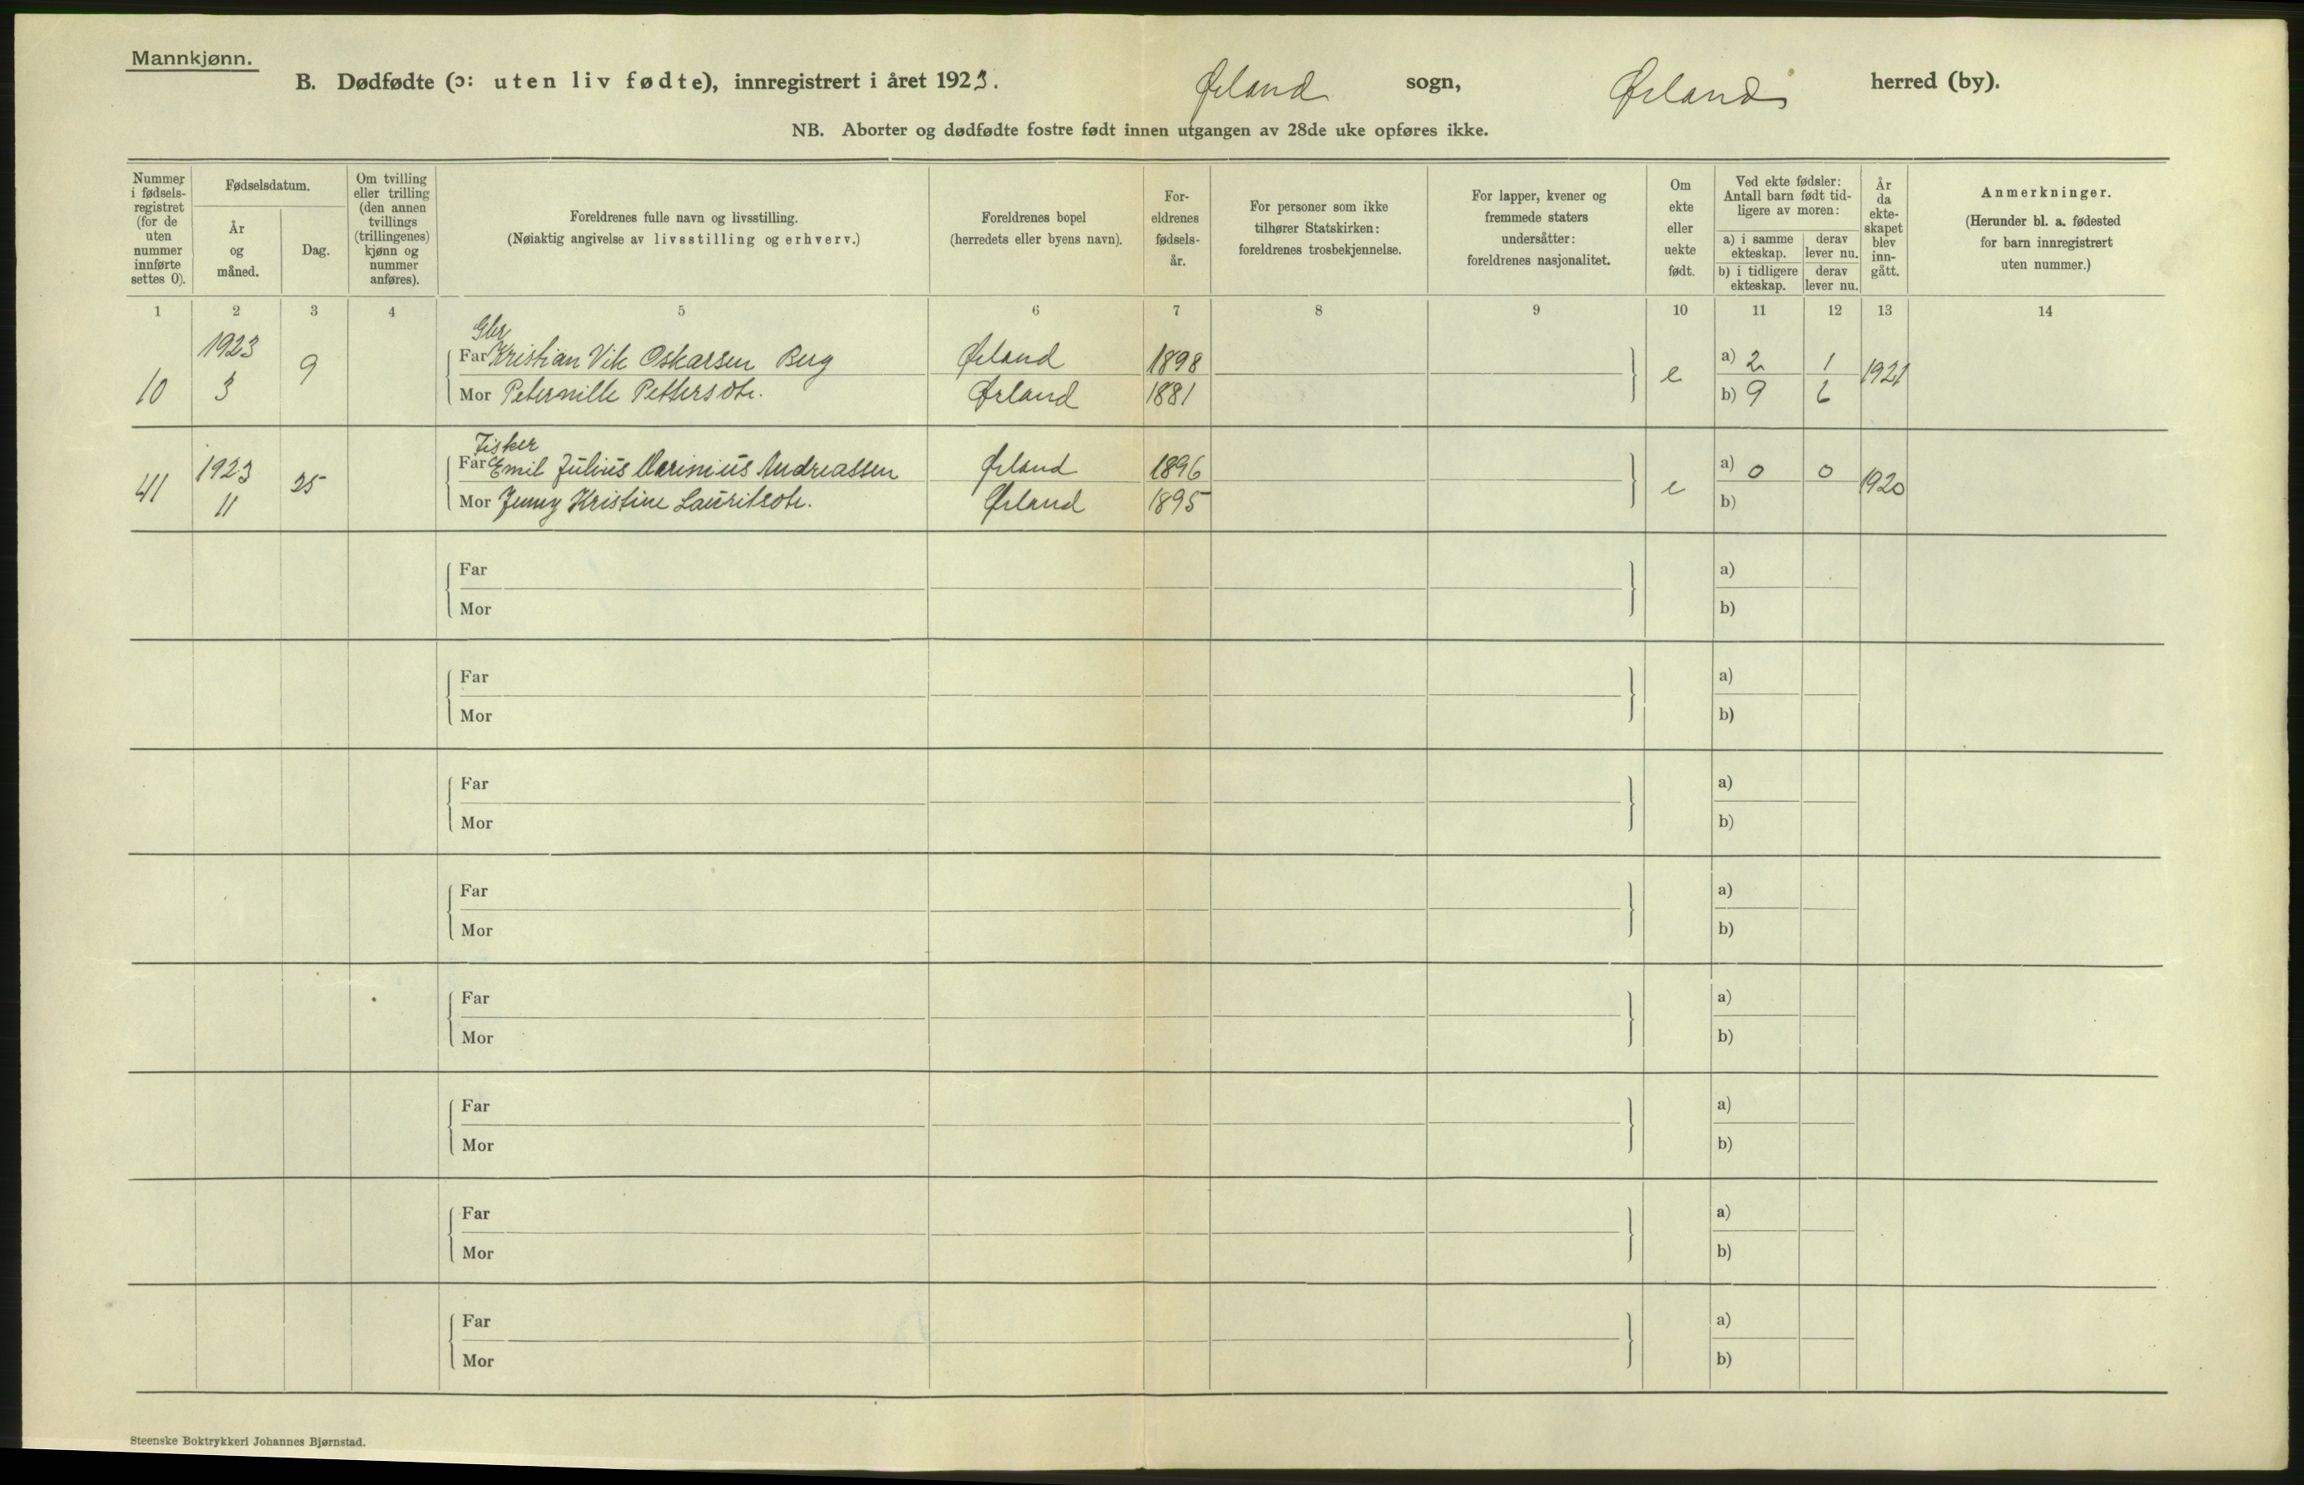 Mannkjønn.
B. Dødfødte (ɔ: uten liv fødte), innregistrert i året 1923. Ørland sogn, Ørland herred (by).
NB. Aborter og dødfødte fostre født innen utgangen av 28de uke opføres ikke.
Nummer i fødselsregistret (for de uten nummer innførte settes 0).
Fødselsdatum.
År og måned.
Dag.
Om tvilling eller trilling (den annen tvillings (trillingenes) kjønn og nummer anføres).
Foreldrenes fulle navn og livsstilling.
(Nøiaktig angivelse av livsstilling og erhverv.)
Foreldrenes bopel
(herredets eller byens navn).
Foreldrenes fødselsår.
For personer som ikke tilhører Statskirken: foreldrenes trosbekjennelse.
For lapper, kvener og fremmede staters undersåtter: foreldrenes nasjonalitet.
Om ekte eller uekte født.
Ved ekte fødsler: Antall barn født tidligere av moren:
a) i samme ekteskap. derav lever nu.
b) i tidligere ekteskap. derav lever nu.
År da ekteskapet blev inngått.
Anmerkninger.
(Herunder bl. a. fødested for barn innregistrert uten nummer.)
1 2 3 4 5 6 7 8 9 10 11 12 13 14
Gbr
1923 9 Far Kristian Vik Oskarsen Berg Ørland 1898 e a) 2 1 1921
10 3 Mor Peternille Pettersdtr. Ørland 1881 b) 9 6
Fisker
1923 25 Far Emil Julius Marinius Andreassen Ørland 1896 e a) 0 0 1920
41 11 Mor Jenny Kristine Lauritsdtr. Ørland 1895 b)
Far a)
Mor b)
Far a)
Mor b)
Far a)
Mor b)
Far a)
Mor b)
Far a)
Mor b)
Far a)
Mor b)
Far a)
Mor b)
Far a)
Mor b)
Steenske Boktrykkeri Johannes Bjørnstad.